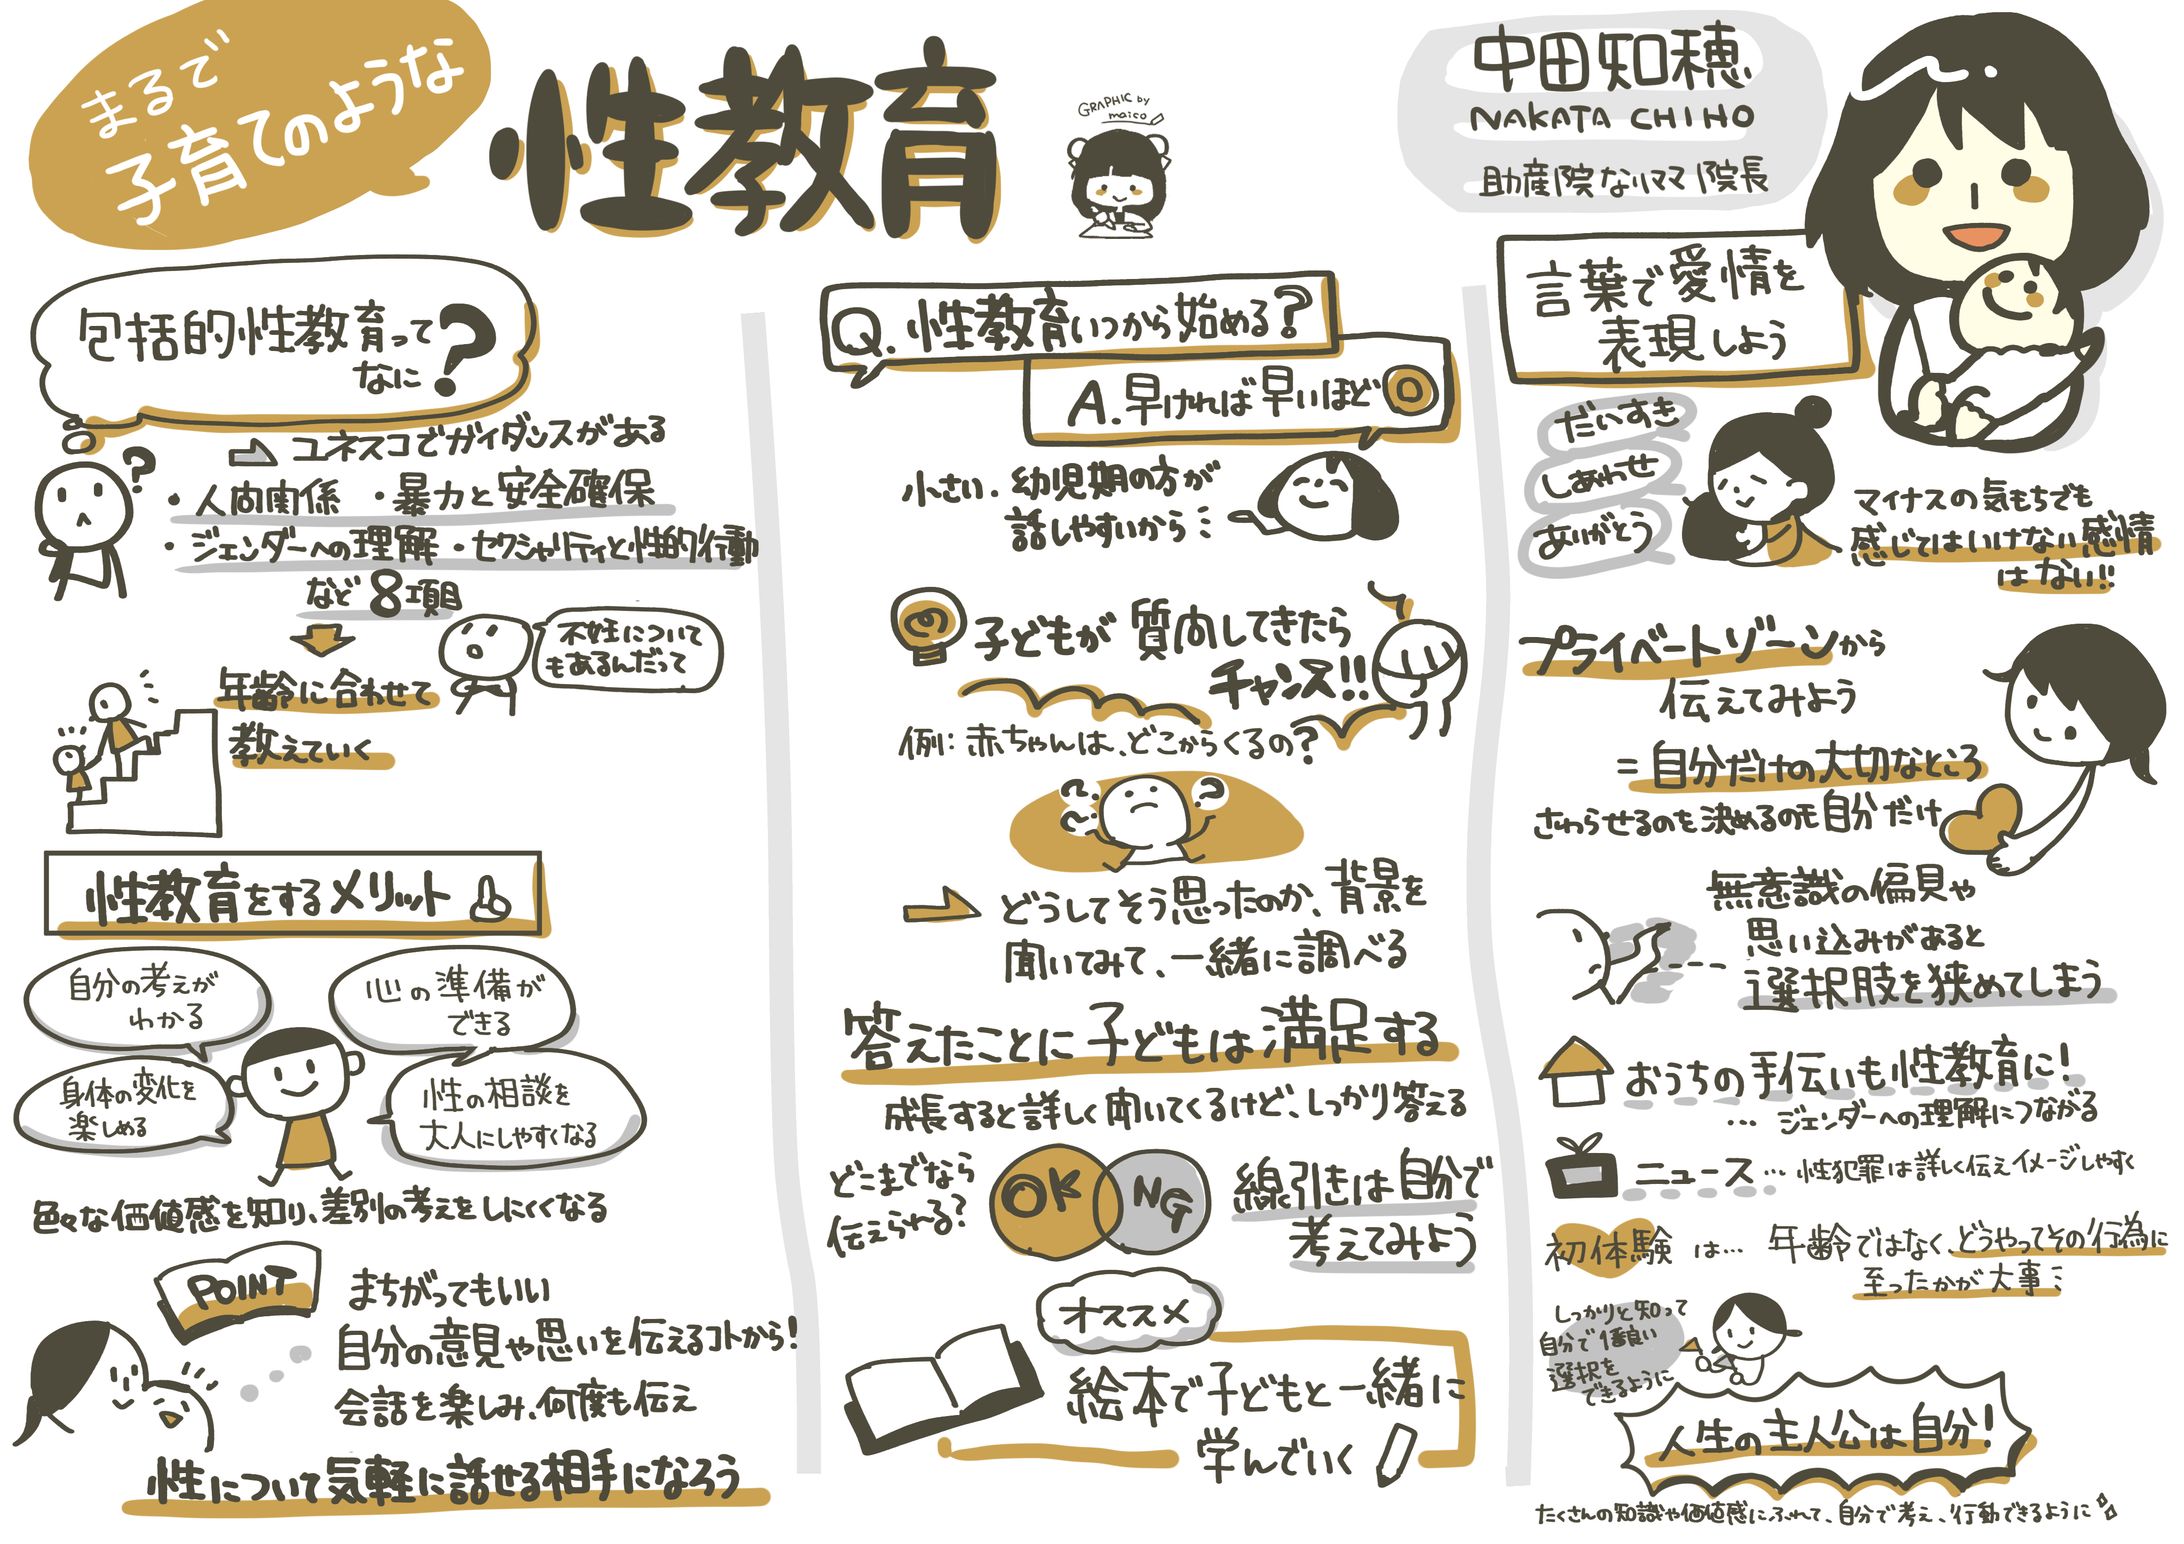 まるで
子育てのような
性教育
GRAPHIC by
maico
中田知穂
NAKATA CHIHO
助産院なりママ院長
包括的性教育って
なに?
ユネスコでガイダンスがある
・人間関係 ・暴力と安全確保
・ジェンダーへの理解・セクシャリティと性的行動
など8項目
不妊について
もあるんだって
年齢に合わせて
教えていく
性教育をするメリット
自分の考えが
わかる
心の準備が
できる
身体の変化を
楽しめる
性の相談を
大人にしやすくなる
色々な価値感を知り、差別の考えをしにくくなる
POINT
まちがってもいい
自分の意見や思いを伝えるコトから!
会話を楽しみ、何度も伝え
性について気軽に話せる相手になろう
Q.性教育いつから始める?
A.早ければ早いほど◎
小さい・幼児期の方が
話しやすいから
子どもが質問してきたら
チャンス!!
例:赤ちゃんは、どこからくるの?
どうしてそう思ったのか、背景を
聞いてみて、一緒に調べる
答えたことに子どもは満足する
成長すると詳しく聞いてくるけど、しっかり答える
どこまでなら
伝えられる?
OK
NG
線引きは自分で
考えてみよう
オススメ
絵本で子どもと一緒に
学んでいく
言葉で愛情を
表現しよう
だいすき
しあわせ
ありがとう
マイナスの気もちでも
感じてはいけない感情
はない!!
プライベートゾーンから
伝えてみよう
=自分だけの大切なところ
さわらせるのを決めるのも自分だけ
無意識の偏見や
思い込みがあると
選択肢を狭めてしまう
おうちの手伝いも性教育に!
…ジェンダーへの理解につながる
ニュース…性犯罪は詳しく伝えイメージしやすく
初体験は…年齢ではなく、どうやってその行為に
至ったかが大事
しっかりと知って
自分で
選択を
できるように
人生の主人公は自分!
たくさんの知識や価値感にふれて、自分で考え、行動できるように